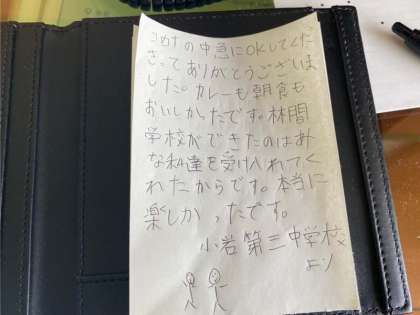 コロナの中急にOKしてくだ
さってありがとうございま
した。カレーも朝食も
おいしかったです。林間
学校ができたのはみ
な私達を受け入れてく
れたからです。本当に
楽しかったです。
小岩第三中学校
より